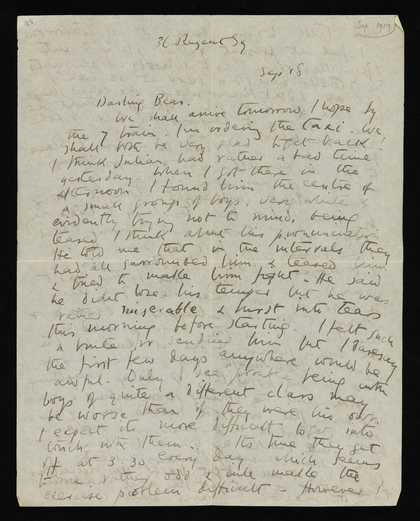 Sep 1919
36 Regent Sq
Sep 18
Darling Bear.
We shall arrive tomorrow I hope by
the 7 train. I'm ordering the taxi. We
shall both be very glad to get back!
I think Julian had rather a bad time
yesterday. When I got there in the
afternoon I found him the centre of
a small group of boys, very white
evidently trying not to mind being
teased I think about his pronunciation
He told me that in the intervals they
had all surrounded him & teased him
& tried to make him fight - He said
he didnt lose his temper but he was
rather miserable & burst into tears
this morning before starting. I felt such
a brute for sending him but I daresay
the first few days anywhere would be
awful. Only I see that being with
boys of quite a different class may
be worse than if they were his own.
I expect its more difficult to get into
touch with them. Its time they get
at 3.30 every day which seems
to me rather odd & will make the
exercise problem difficult - However I